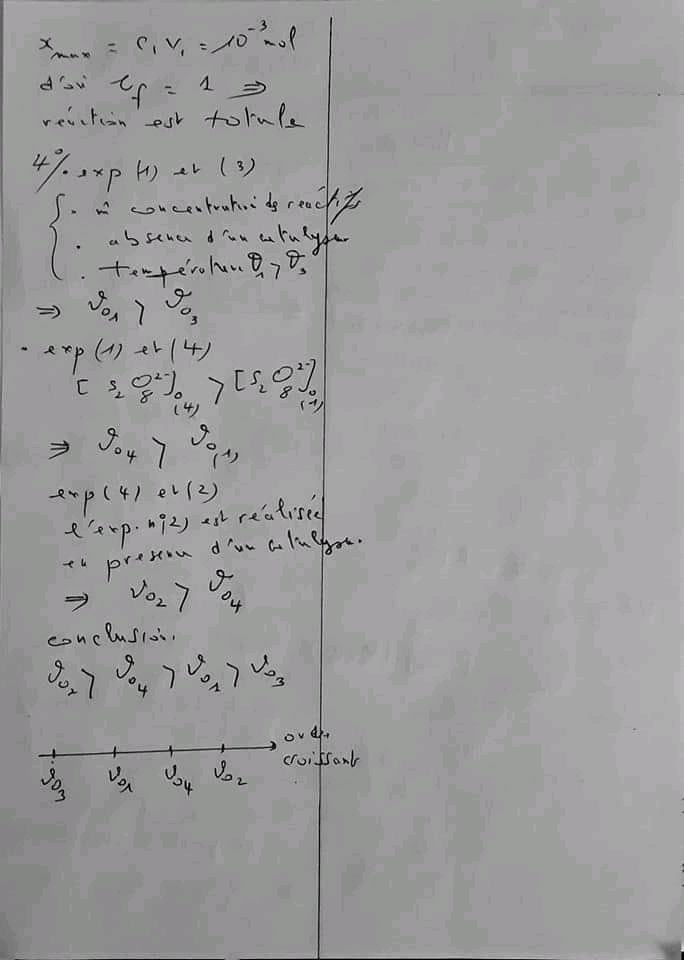 x_max = C₁V₁ = 10⁻³ mol
d'où τ_f = 1 ⇒
réaction est totale
4°/. exp (1) et (3)
. m̂ concentration des réactifs
. absence d'un catalyseur
. température θ₁ > θ₃
⇒ v₀₁ > v₀₃
. exp (1) et (4)
[S₂O₈²⁻]₀(4) > [S₂O₈²⁻]₀(1)
⇒ v₀₄ > v₀(1)
exp (4) et (2)
l'exp. n°(2) est réalisée
en presence d'un catalyseur.
⇒ v₀₂ > v₀₄
conclusion.
v₀₂ > v₀₄ > v₀₁ > v₀₃
ordre
croissant
v₀₃ v₀₁ v₀₄ v₀₂